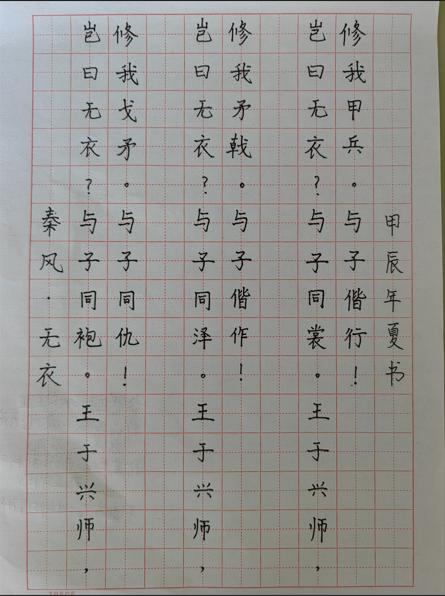 秦风·无衣
岂曰无衣?与子同袍。王于兴师,
修我戈矛。与子同仇!
岂曰无衣?与子同泽。王于兴师,
修我矛戟。与子偕作!
岂曰无衣?与子同裳。王于兴师,
修我甲兵。与子偕行!
甲辰年夏书